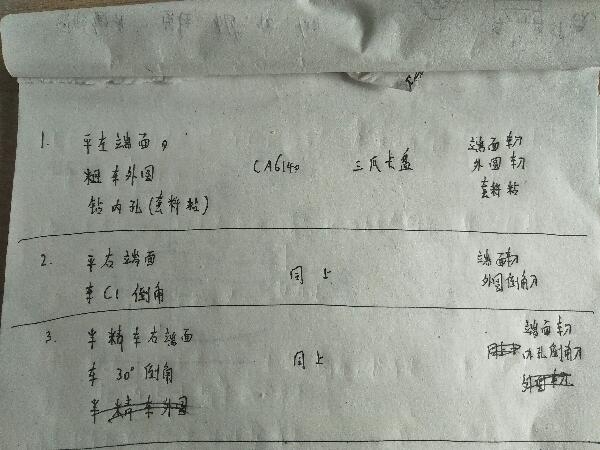 1. 平左端面, CA6140 三爪卡盘 端面车刀
粗车外圆 外圆车刀
钻内孔(套料钻) 套料钻
2. 平右端面 同上 端面车刀
车C1倒角 外圆倒角刀
3. 半精车右端面 同上 端面车刀
车30°倒角 内孔倒角刀
半精车外圆 外圆车刀